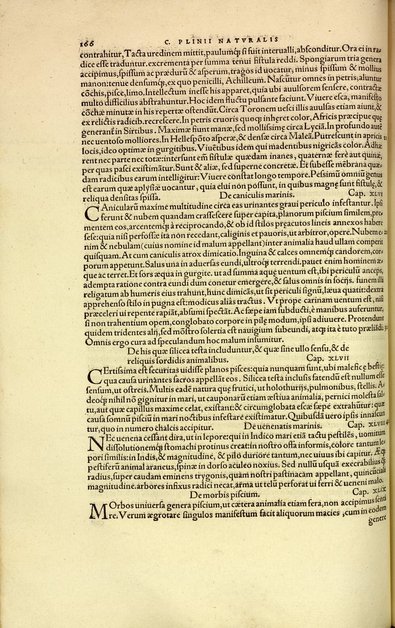 166 C. PLINII NATVRALIS
contrahitur, Tacta uredinem mittit, paulumq́; si fuit interualli, absconditur. Ora ei in ra/
dice esse traduntur. excrementa per summa tenui fistula reddi. Spongiarum tria genera
accipimus, spissum ac prædurū & asperum, tragos id uocatur, minus spissum & mollius
manon: tenue densumq́;, ex quo penicilli, Achilleum. Nascūtur omnes in petris, aluntur
cōchis, pisce, limo. Intellectum inesse his apparet, quia ubi auulsorem sensere, contractæ
multo difficilius abstrahuntur. Hoc idem fluctu pulsante faciunt. Viuere esca, manifesto
cōchæ minutæ in his repertæ ostendūt. Circa Toronen uesci illis auulsas etiam aiunt, &
ex relictis radicib. recrescere. In petris cruoris quoq; inheret color, Africis præcipue quæ
generant in Sirtibus. Maximæ fiunt manæ, sed mollissimæ circa Lyciā. In profundo autē
nec uentoso molliores. In Hellespōto asperæ, & densæ circa Maleā. Putrescunt in apricis
locis, ideo optimæ in gurgitibus. Viuētibus idem qui madentibus nigricās color. Adhæ
rent nec parte nec totæ: intersunt em̄ fistulæ quædam inanes, quaternæ ferè aut quinæ,
per quas pasci existimātur. Sunt & aliæ, sed superne concretæ. Et subesse mēbrana quæ/
dam radicibus earum intelligitur. Viuere constat longo tempore. Pessimū omniū genus
est earum quæ aplysiæ uocantur, quia elui non possunt, in quibus magnę sunt fistulę, &
reliqua densitas spissa. De caniculis marinis. Cap. XLVI
CAnicularū maxime multitudine circa eas urinantes graui periculo infestantur. Ipsi
ferunt & nubem quandam crassescere super capita, planorum piscium similem,
mentem eos, arcentemq́; à reciprocando, & ob id stilos præacutos lineis annexos habere
sese: quia nisi perfossæ ita non recedant, caliginis et pauoris, ut arbitror, opere. Nubem
nim & nebulam (cuius nomine id malum appellant) inter animalia haud ullam comperit
quisquam. At cum caniculis atrox dimicatio. Inguina & calces omnemq́; candorem, cor
porum appetunt. Salus una in aduersas eundi, ultroq́; terrendi. pauet enim hominem æ
que ac terret. Et sors æqua in gurgite. ut ad summa aquæ uentum est, ibi periculū anceps,
adempta ratione contra eundi dum conetur emergere, & salus omnis in socijs. funem illi
religatum ab humeris eius trahunt, hunc dimicās, ut sit periculi signū, læua quatit: dextra
apprehenso stilo in pugna est: modicus aliàs tractus. Vt prope carinam uentum est, nisi
præceleri ui repente rapiāt, absumi spectāt. Ac sæpe iam subducti, è manibus auferuntur,
si non trahentium opem, conglobato corpore in pilę modum, ipsi adiuuere. Protendunt
quidem tridentes alij, sed mōstro solertia est nauigium subeundi, atq; ita è tuto prælian
Omnis ergo cura ad speculandum hoc malum insumitur.
De his quæ silicea testa includuntur, & quæ sine ullo sensu, & de
reliquis sordidis animalibus. Cap. XLVII
CErtissima est securitas uidisse planos pisces: quia nunquam sunt, ubi maleficę bestię:
qua causa urinantes sacros appellāt eos. Silicea testa inclusis fatendū est nullum esse
sensum, ut ostreis. Multis eadē natura quæ frutici, ut holothurijs, pulmonibus, stellis. A
deoq́; nihil nō gignitur in mari, ut cauponarū etiam æstiua animalia, pernici molesta sal/
tu, aut quæ capillus maxime celat, existāt: & circumglobata escæ sæpe extrahūtur: quæ
causa somnū pisciū in mari noctibus infestare existimatur. Quibusdā uero ipsis innascun/
tur, quo in numero chalcis accipitur. De uenenatis marinis. Cap. XLVIII
NEc uenena cessant dira, ut in lepore: qui in Indico mari etiā tactu pestilēs, uomitum
dissolutionemq́; stomachi protinus creat: in nostro offa informis, colore tantum le=
pori similis: in Indis, & magnitudine, & pilo duriore tantum: nec uiuus ibi capitur. Æque
pestiferū animal araneus, spinæ in dorso aculeo noxius. Sed nullū usquā execrabilius
radius, super caudam eminens trygonis, quam nostri pastinacam appellant, quincunciali
magnitudine. arbores infixus radici necat, arma ut telū perforat ui ferri & ueneni malo.
De morbis piscium. Cap. XLIX
MOrbos uniuersa genera piscium, ut cætera animalia etiam fera, non accipimus senti
re. Verum ægrotare singulos manifestum facit aliquorum macies, cum in eodem
genere